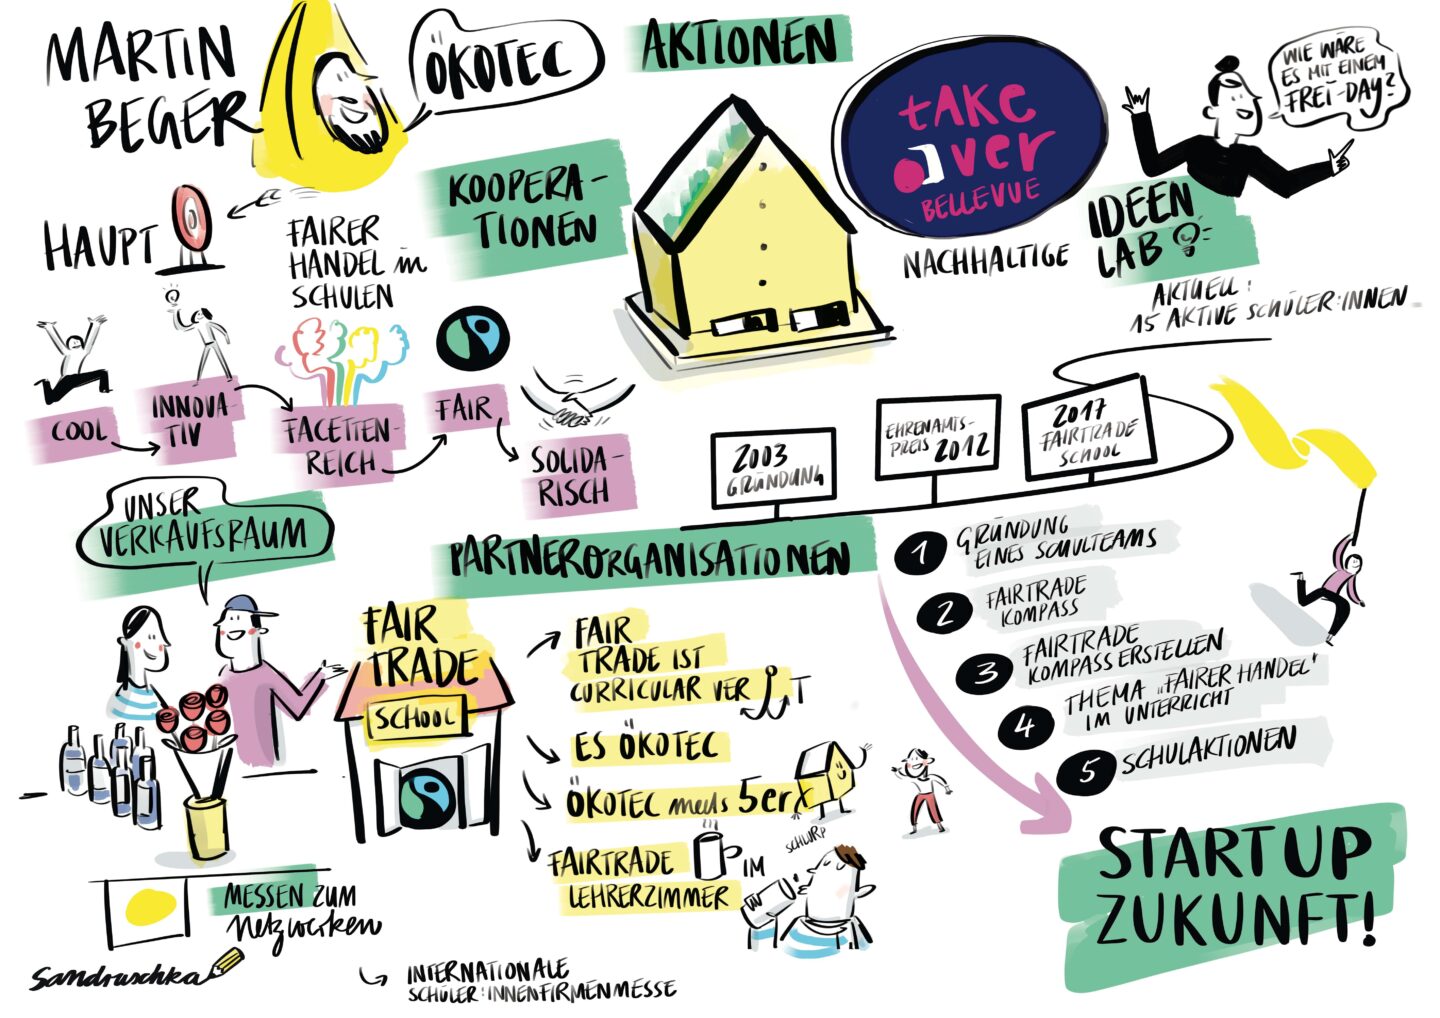 MARTIN
BEGER
ÖKOTEC
AKTIONEN
KOOPERA-
TIONEN
tAKE
over
BELLEVUE
WIE WÄRE
ES MIT EINEM
FREI-DAY?
NACHHALTIGE
IDEEN
LAB
AKTUELL:
15 AKTIVE SCHÜLER:INNEN
HAUPT
FAIRER
HANDEL in
SCHULEN
COOL
INNOVA-
TIV
FACETTEN-
REICH
FAIR
SOLIDA-
RISCH
2003
GRÜNDUNG
EHRENAMTS-
PREIS 2012
2017
FAIRTRADE
SCHOOL
UNSER
VERKAUFSRAUM
PARTNERORGANISATIONEN
FAIR
TRADE
SCHOOL
FAIR
TRADE IST
CURRICULAR VER T
ES ÖKOTEC
ÖKOTEC meets 5er
FAIRTRADE IM
LEHRERZIMMER
SCHLÜRP
1 GRÜNDUNG
EINES SCHULTEAMS
2 FAIRTRADE
KOMPASS
3 FAIRTRADE
KOMPASS ERSTELLEN
4 THEMA „FAIRER HANDEL"
IM UNTERRICHT
5 SCHULAKTIONEN
START UP
ZUKUNFT!
MESSEN ZUM
Netzwerken
INTERNATIONALE
SCHÜLER:INNENFIRMENMESSE
Sandruschka